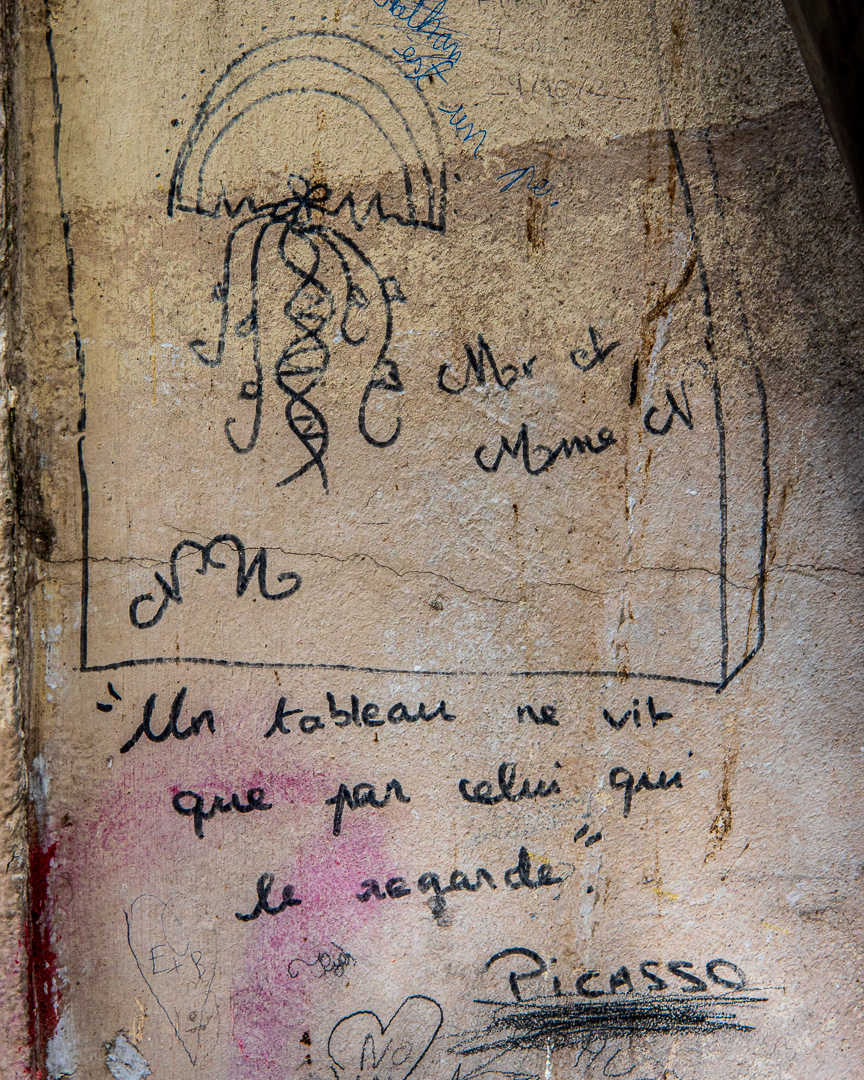 est un
ne.
Mr et
Mme N
"Un tableau ne vit
que par celui qui
le regarde".
E+B
PICASSO
NO